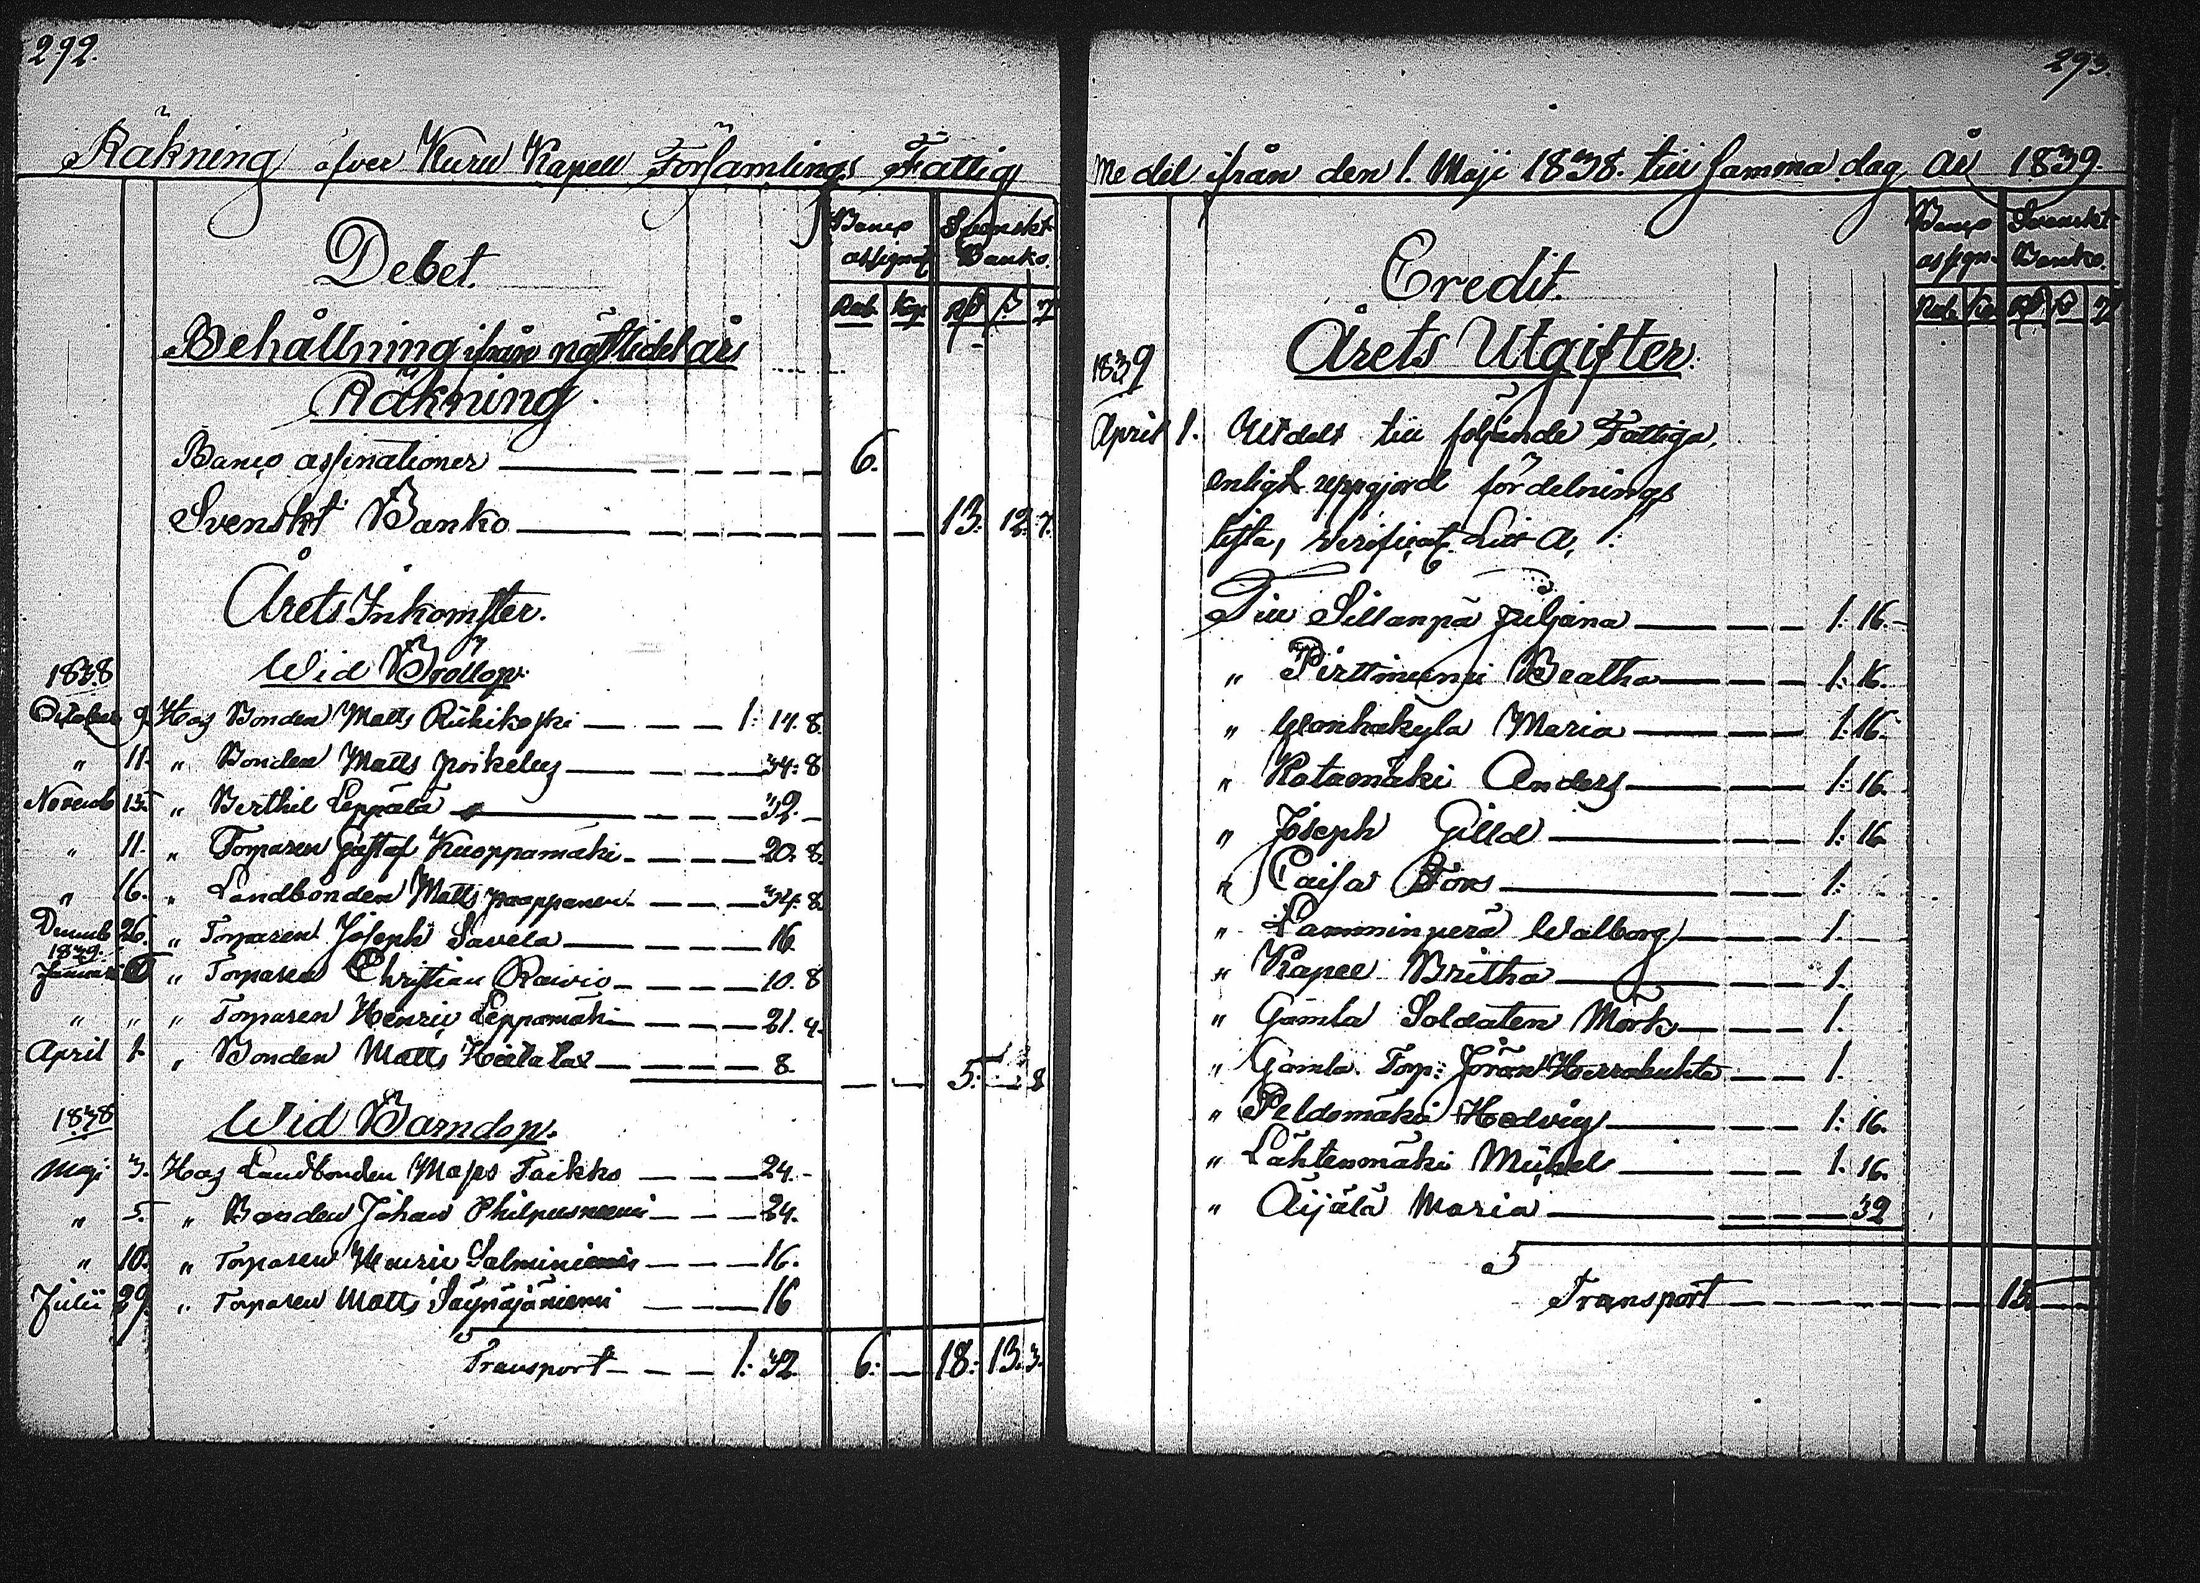 292.
Räkning öfver Kuru Kapell Församlings Fattig
Banco assignat Svenskt Banko.
Debet.
Rub. Kop. Rd ß r
Behållning ifrån nästledet års
Räkning
Banco assinationer — 6.
Svenskt Banko — 13. 12. 7.
Årets Inkomster.
1838 Wid Bröllop.
October 9. Hos Bonden Matts Riihikoski — 1: 14. 8.
" 11. " Bonden Matts Poikelus — 34: 8
Novemb 15. " Berthil Leppälä — 32. —
" 11. " Torparen Gustaf Kuoppamäki — 20. 8.
" 16. " Landbonden Matts Paappanen — 34. 8.
Decemb 26. " Torparen Joseph Savela — 16
1839.
Januari 6 " Torparen Christian Raivio — 10. 8
" " " Torparen Henric Leppämäki — 21. 4.
April 1. " Bonden Matts Hietalax — 8.
5: — 8
1838 Wid Barndop.
Maji 3. Hos Landbonden Maps Taikko — 24. -
" 5. " Bonden Johan Philpusniemi — 24.
" 10. " Torparen Henric Salminiemi — 16.
Julii 29. " Torparen Matts Säynäjäniemi — 16
Transport — 1: 32. 6: — 18: 13. 3.
293.
Medel ifrån den 1. Maji 1838. till samma dag År 1839.
Banco assgn. Svenskt Banko.
Credit.
Rub. Ko. Rd ß r
1839 Årets Utgifter.
April 1. Utdelt till följande Fattiga,
enligt uppgjord fördelnings
lista, verificat. Litt A, 1.
Till Sillanpä Juljana — 1: 16. -
" Pirttiniemi Beatha — 1: 16.
" Wanhakyla Maria — 1: 16.
" Katamäki Anders — 1: 16.
" Joseph Gilld — 1: 16
" Caisa Fors — 1: -
" Lamminperä Walborg — 1. —
" Kapee Britha — 1.
" Gamla Soldaten Mörk — 1.
" Gamla Torp: Jöran Herrakuhta — 1.
" Peldomäki Hedvig — 1: 16.
" Lähtenmäki Michel — 1. 16.
" Äijälä Maria — 32
Transport — 15. —